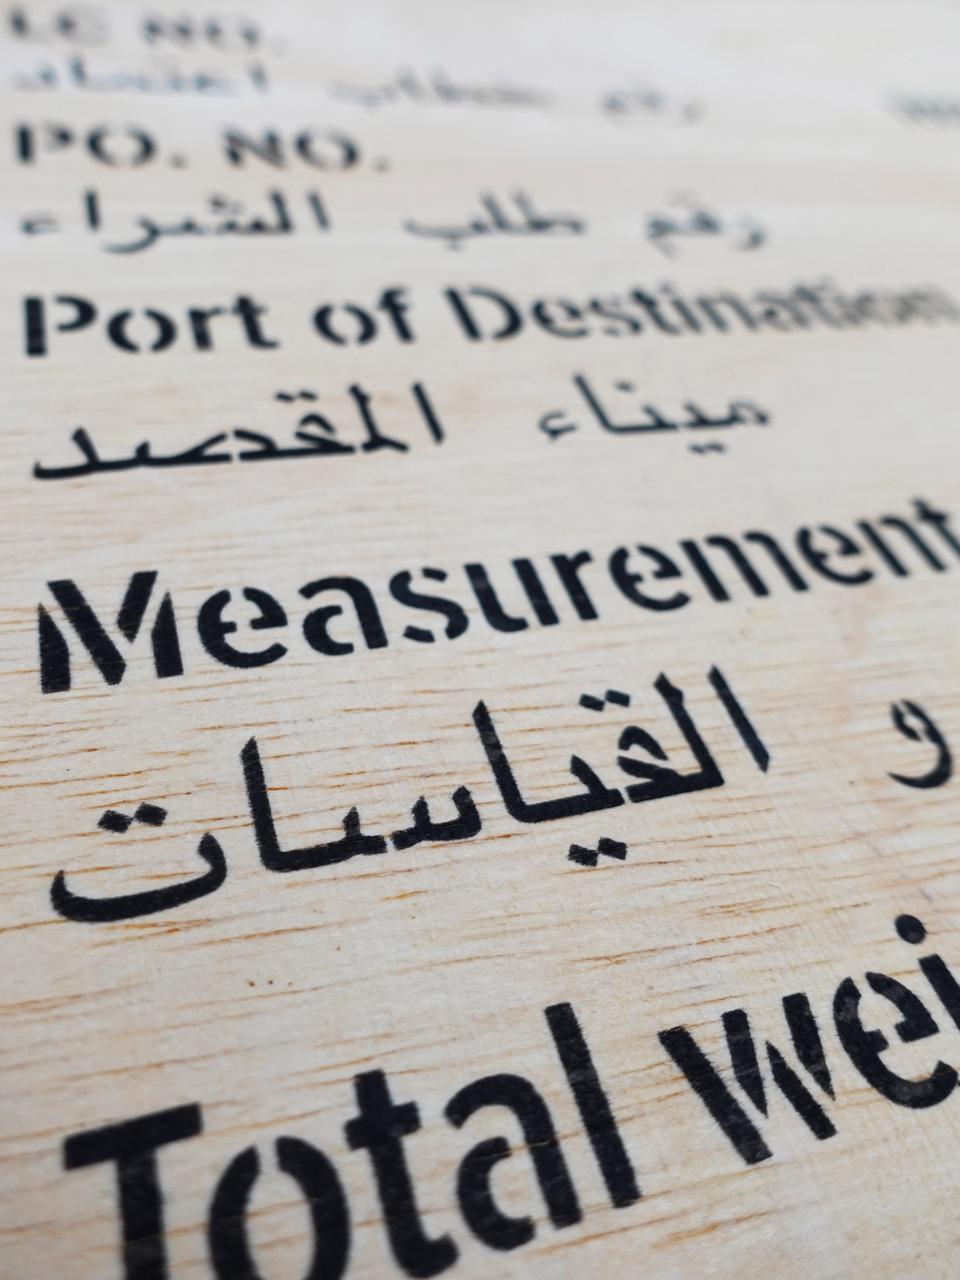 LC NO.
رقم خطاب اعتماد
PO. NO.
رقم طلب الشراء
Port of Destination
ميناء المقصد
Measurement
و القياسات
Total wei